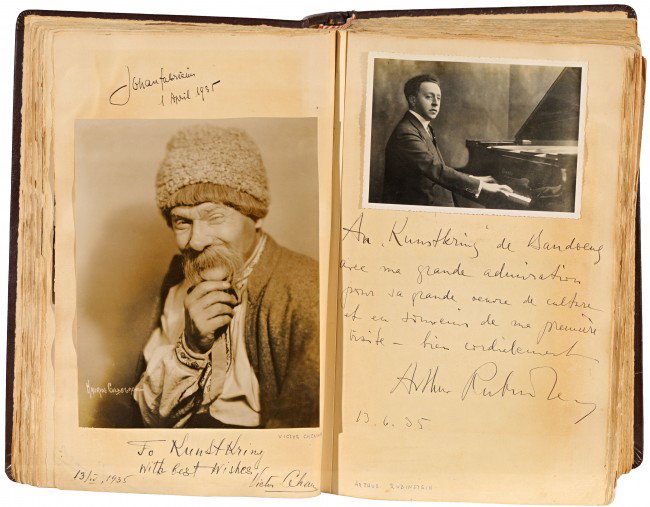 Johan Fabricius
1 April 1935
VICTOR CHENKIN
To KunstKring
with best wishes
13/II, 1935 Victor
Au „Kunstkring" de Bandoeng
avec ma grande admiration
pour sa grande oeuvre de culture
et en souvenir de ma première
visite – bien cordialement
Arthur Rubinstein
13.6.35.
ARTHUR RUBINSTEIN